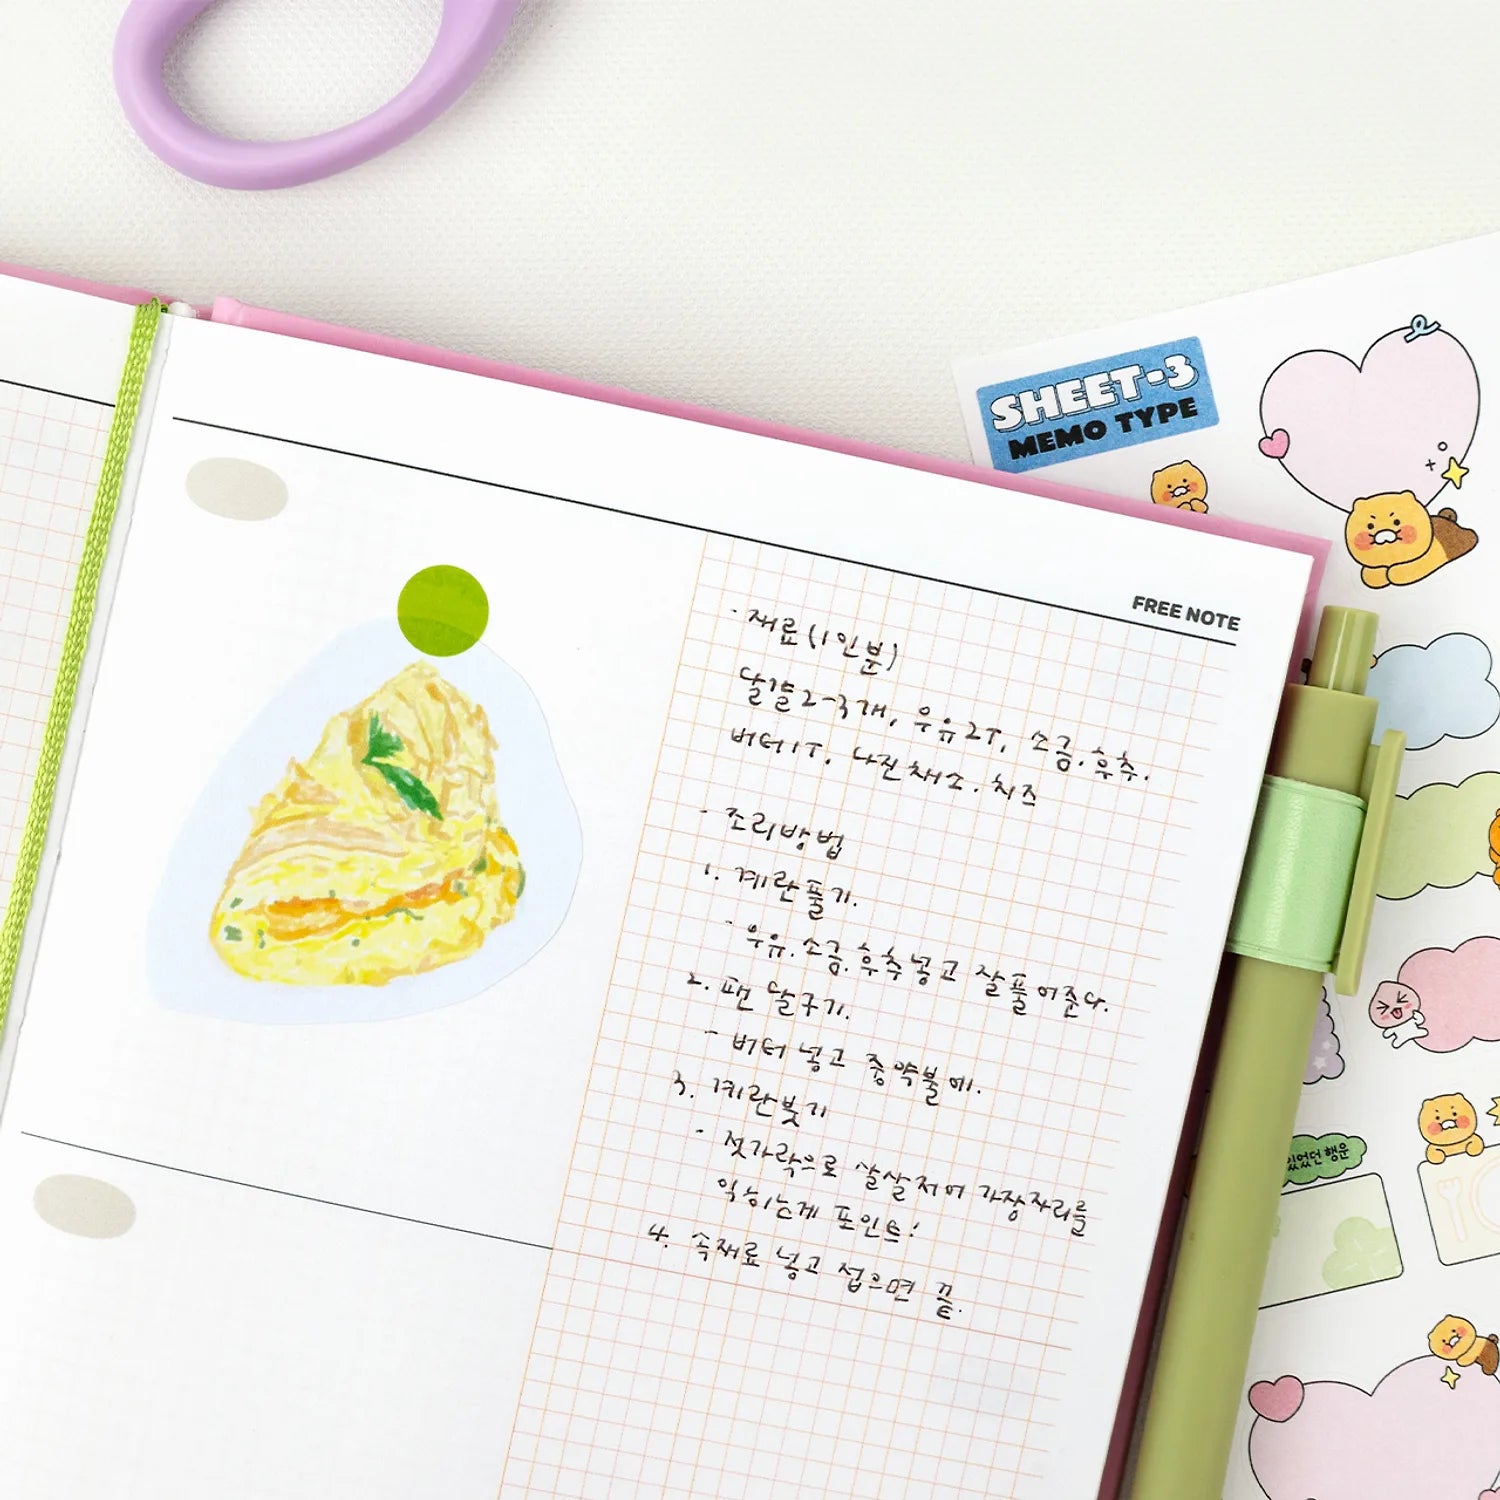 SHEET-3
MEMO TYPE
FREE NOTE
· 재료(1인분)
달걀2-3개, 우유2T, 소금.후추.
버터1T. 다진채소. 치즈
· 조리방법
1. 계란풀기.
- 우유.소금.후추넣고 잘풀어준다.
2. 팬 달구기.
- 버터 넣고 중약불에.
3. 계란붓기
- 젓가락으로 살살저어 가장자리를
익히는게 포인트!
4. 속재료 넣고 접으면 끝.
있었던 행운